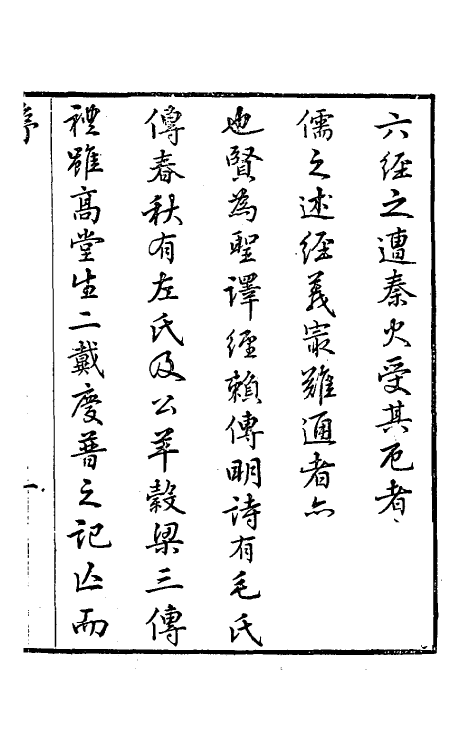 六經之遭秦火受其厄者
儒之述經義最難通者亦
也賢為聖譯經賴傳明詩有毛氏
傳春秋有左氏及公羊穀梁三傳
禮雖高堂生二戴慶普之記亾而
序
一